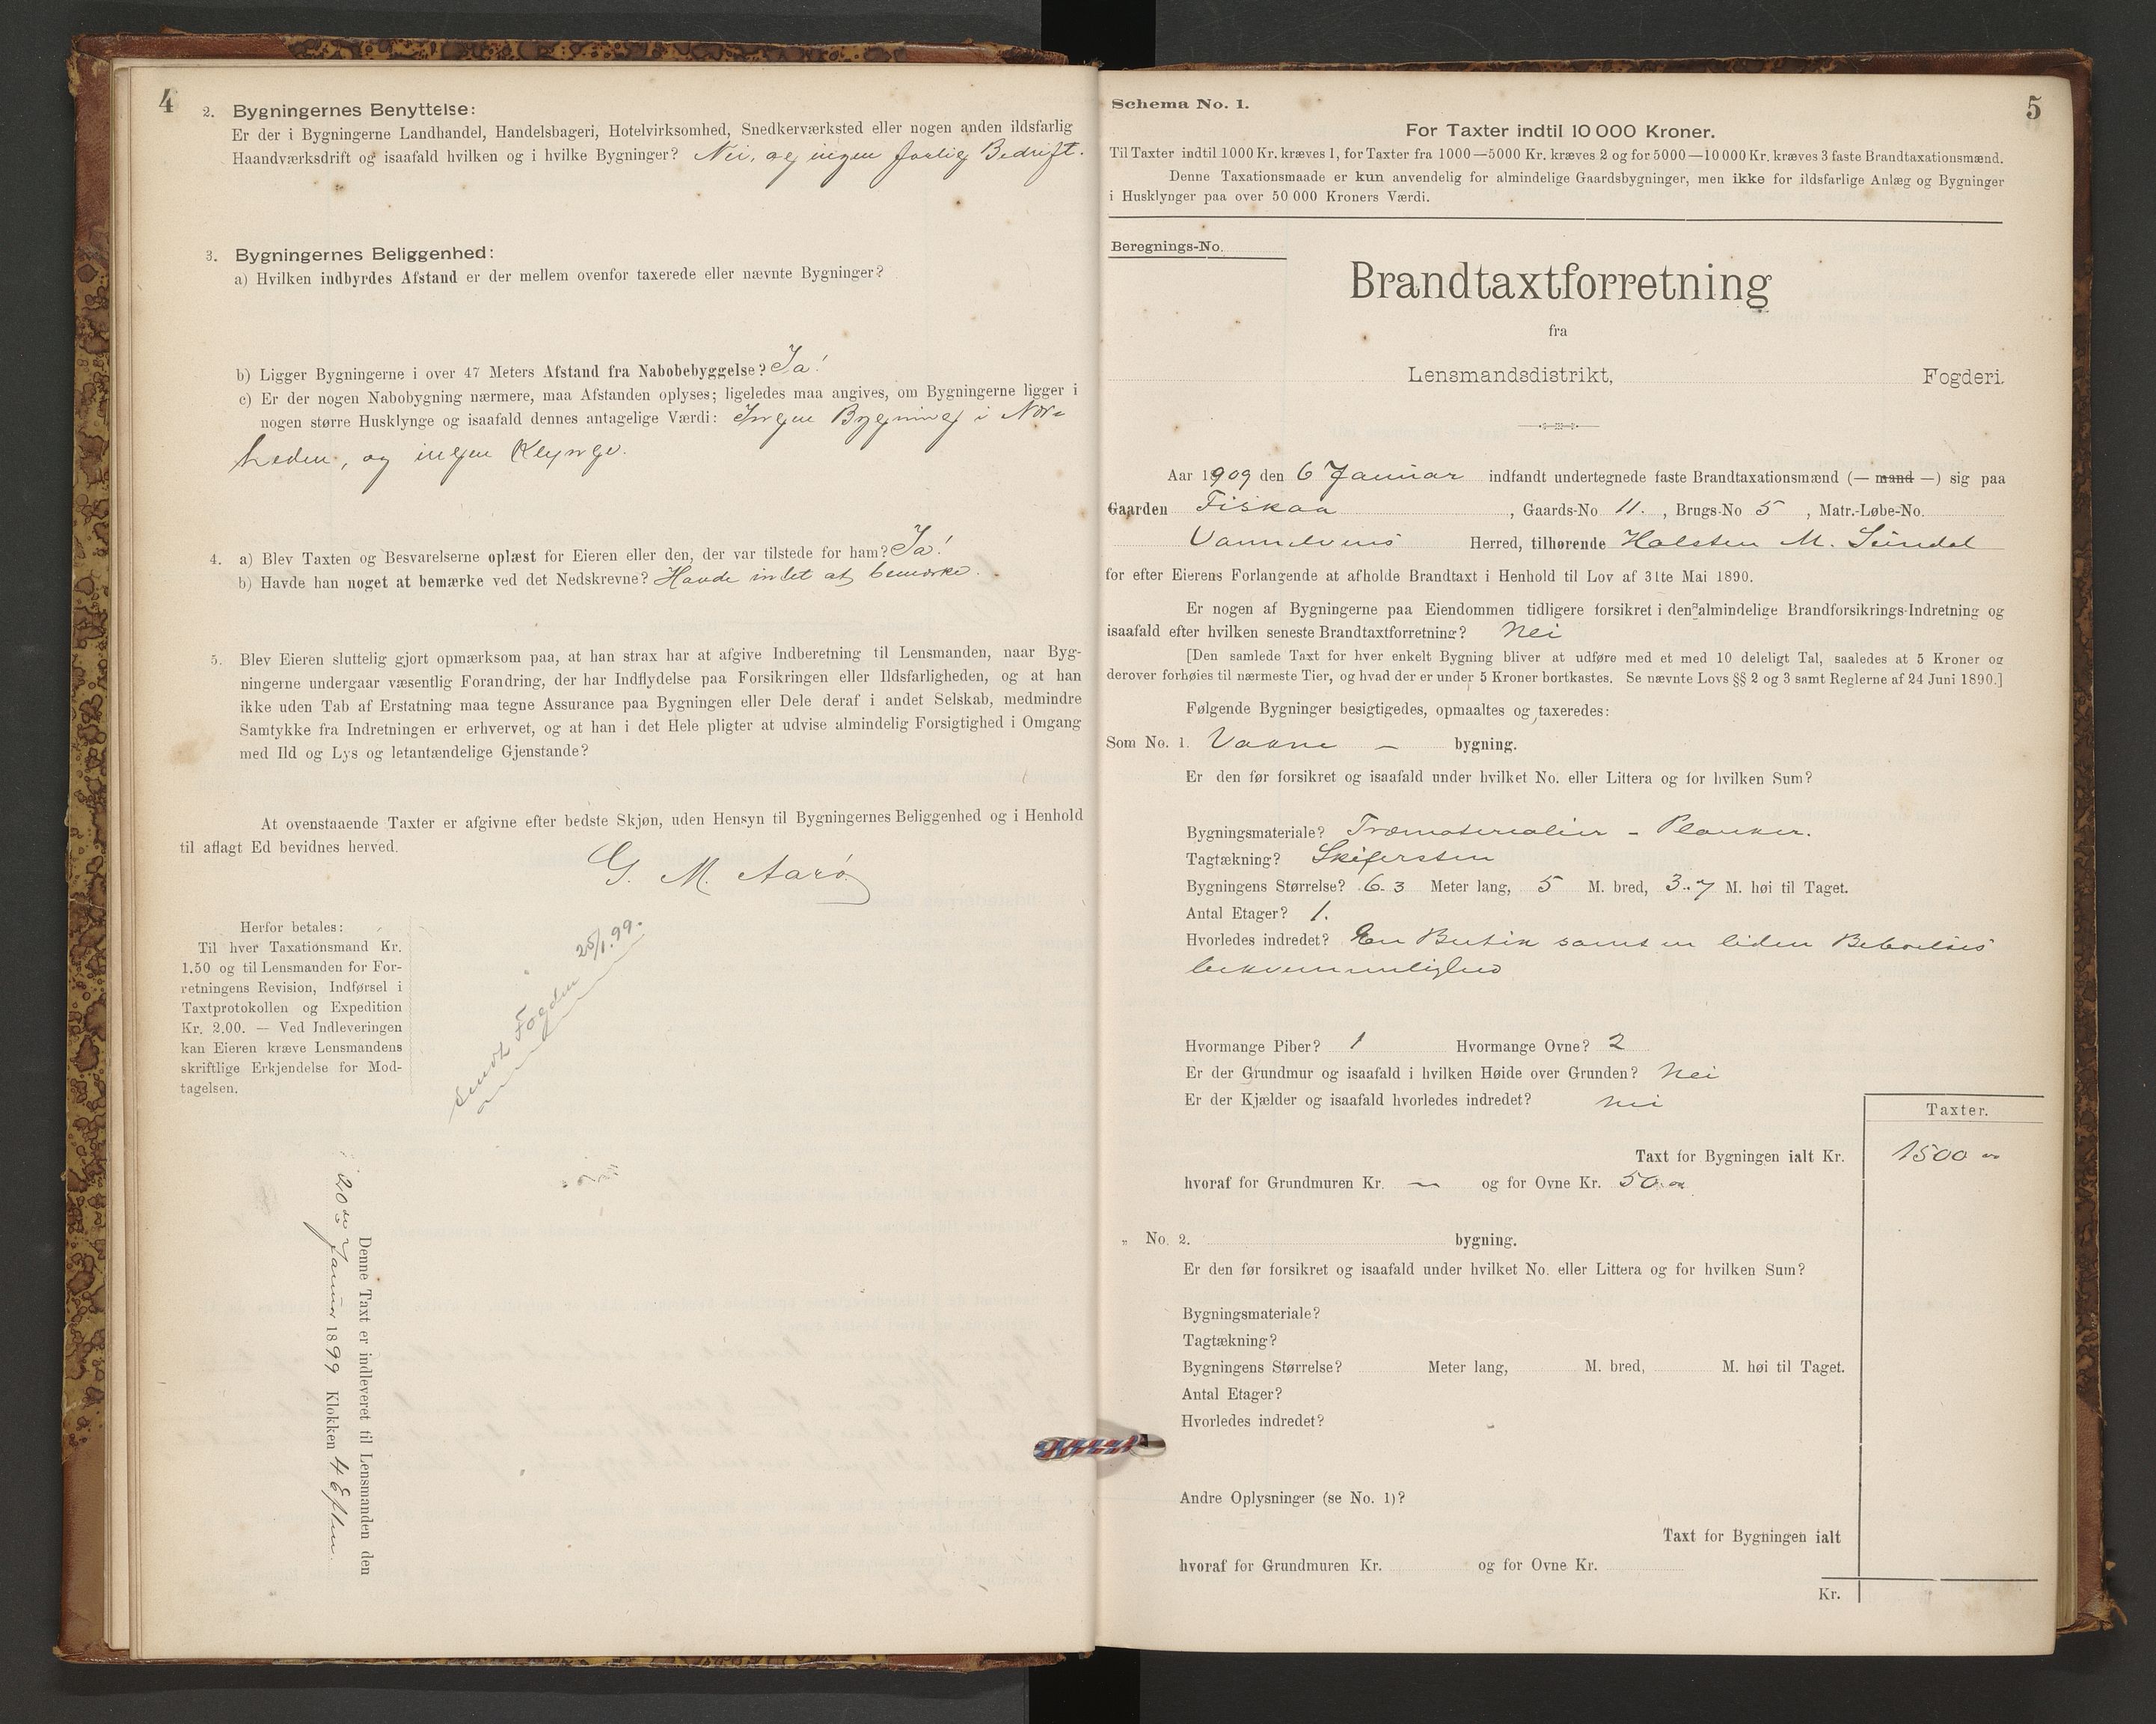 4
2. Bygningernes Benyttelse:
Er der i Bygningerne Landhandel, Handelsbageri, Hotelvirksomhed, Snedkerværksted eller nogen anden ildsfarlig
Haandværksdrift og isaafald hvilken og i hvilke Bygninger? Nei, og ingen farlig Bedrift.
3. Bygningernes Beliggenhed:
a) Hvilken indbyrdes Afstand er der mellem ovenfor taxerede eller nævnte Bygninger?
b) Ligger Bygningerne i over 47 Meters Afstand fra Nabobebyggelse? Ja!
c) Er der nogen Nabobygning nærmere, maa Afstanden oplyses; ligeledes maa angives, om Bygningerne ligger i
nogen større Husklynge og isaafald dennes antagelige Værdi: Ingen Bygning i Nær-
heden, og ingen Klynge.
4. a) Blev Taxten og Besvarelserne oplæst for Eieren eller den, der var tilstede for ham? Ja!
b) Havde han noget at bemærke ved det Nedskrevne? Havde intet at bemærke.
5. Blev Eieren sluttelig gjort opmærksom paa, at han strax har at afgive Indberetning til Lensmanden, naar Byg-
ningerne undergaar væsentlig Forandring, der har Indflydelse paa Forsikringen eller Ildsfarligheden, og at han
ikke uden Tab af Erstatning maa tegne Assurance paa Bygningen eller Dele deraf i andet Selskab, medmindre
Samtykke fra Indretningen er erhvervet, og at han i det Hele pligter at udvise almindelig Forsigtighed i Omgang
med Ild og Lys og letantændelige Gjenstande?
At ovenstaaende Taxter er afgivne efter bedste Skjøn, uden Hensyn til Bygningernes Beliggenhed og i Henhold
til aflagt Ed bevidnes herved.
G. M. Aarø
Herfor betales:
Til hver Taxationsmand Kr.
1.50 og til Lensmanden for For-
retningens Revision, Indførsel i
Taxtprotokollen og Expedition
Kr. 2.00. — Ved Indleveringen
kan Eieren kræve Lensmandens
skriftlige Erkjendelse for Mod-
tagelsen.
Sendt Fogden 25/1.99.
Denne Taxt er indleveret til Lensmanden den
20de Januar 1899 Klokken 4 Eftm.
Schema No. 1.
5
For Taxter indtil 10 000 Kroner.
Til Taxter indtil 1000 Kr. kræves 1, for Taxter fra 1000—5000 Kr. kræves 2 og for 5000—10 000 Kr. kræves 3 faste Brandtaxationsmænd.
Denne Taxationsmaade er kun anvendelig for almindelige Gaardsbygninger, men ikke for ildsfarlige Anlæg og Bygninger
i Husklynger paa over 50 000 Kroners Værdi.
Beregnings-No.
Brandtaxtforretning
fra
Lensmandsdistrikt, Fogderi.
Aar 1909 den 6 Januar indfandt undertegnede faste Brandtaxationsmænd (— mand —) sig paa
Gaarden Fiskaa, Gaards-No 11., Brugs-No 5, Matr.-Løbe-No.
Vannelvens Herred, tilhørende Halsten M. Sundal
for efter Eierens Forlangende at afholde Brandtaxt i Henhold til Lov af 31te Mai 1890.
Er nogen af Bygningerne paa Eiendommen tidligere forsikret i den almindelige Brandforsikrings-Indretning og
isaafald efter hvilken seneste Brandtaxtforretning? Nei
[Den samlede Taxt for hver enkelt Bygning bliver at udføre med et med 10 deleligt Tal, saaledes at 5 Kroner og
derover forhøies til nærmeste Tier, og hvad der er under 5 Kroner bortkastes. Se nævnte Lovs §§ 2 og 3 samt Reglerne af 24 Juni 1890.]
Følgende Bygninger besigtigedes, opmaaltes og taxeredes:
Som No. 1. Vaane — bygning.
Er den før forsikret og isaafald under hvilket No. eller Littera og for hvilken Sum?
Bygningsmateriale? Træmaterialier - Planker.
Tagtækning? Skifersten
Bygningens Størrelse? 6.3 Meter lang, 5 M. bred, 3.7 M. høi til Taget.
Antal Etager? 1.
Hvorledes indredet? En Butik samt en liden Beboelses
bekvemmelighed
Hvormange Piber? 1 Hvormange Ovne? 2
Er der Grundmur og isaafald i hvilken Høide over Grunden? Nei
Er der Kjælder og isaafald hvorledes indredet? Nei
Taxter.
Taxt for Bygningen ialt Kr. 1500 oo
hvoraf for Grundmuren Kr. — og for Ovne Kr. 50.oo
„ No. 2. bygning.
Er den før forsikret og isaafald under hvilket No. eller Littera og for hvilken Sum?
Bygningsmateriale?
Tagtækning?
Bygningens Størrelse? Meter lang, M. bred, M. høi til Taget.
Antal Etager?
Hvorledes indredet?
Andre Oplysninger (se No. 1)?
Taxt for Bygningen ialt
hvoraf for Grundmuren Kr. og for Ovne Kr.
Kr.